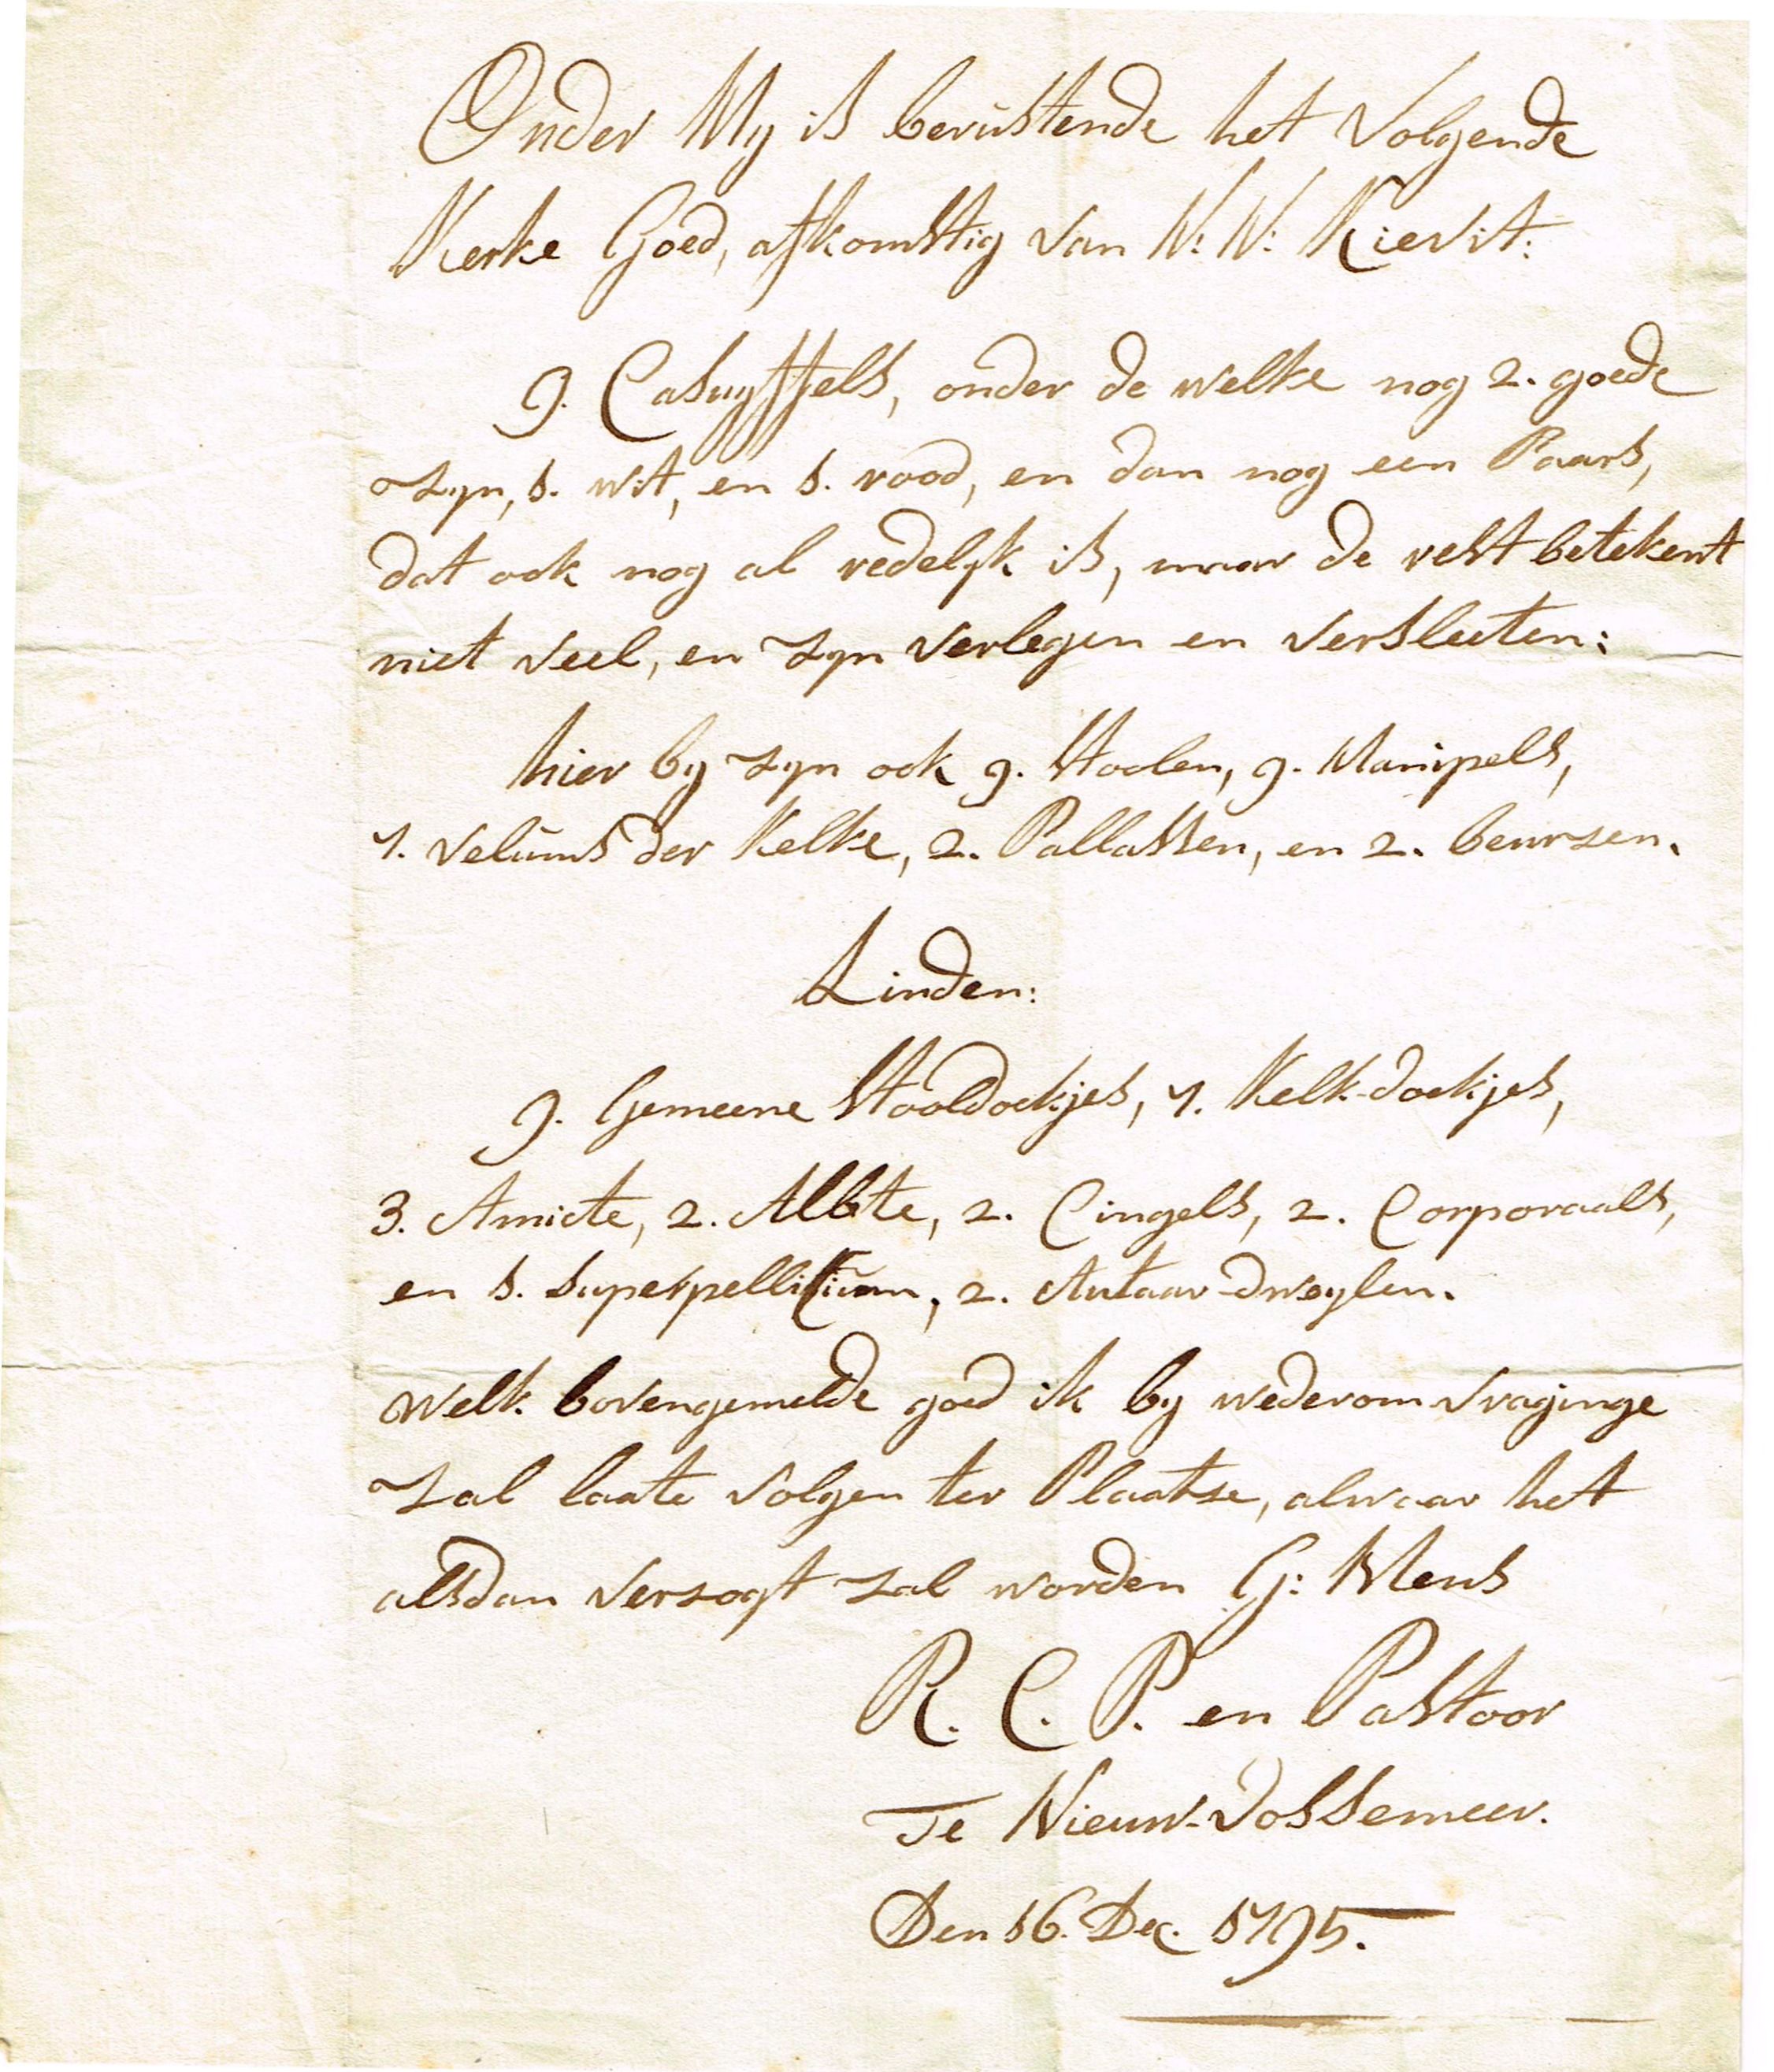 Onder My is berustende het volgende
Kerke Goed, afkomstig van N: N: Kievit:
9. Casuyffels, onder de welke nog 2. goede
zyn, 1. wit, en 1. rood, en dan nog een Paars,
dat ook nog al redelyk is, maar de rest betekent
niet veel, en zyn verlegen en versleeten:
hier by zyn ook 9. Stoolen, 9. Manipels,
7. velums der Kelke, 2. Pallassen, en 2. beurzen.
Linden:
9. Gemeene Stooldoekjes, 7. Kelk-doekjes,
3. Amicte, 2. Albte, 2. Cingels, 2. Corporaals,
en 1. Superpellicium, 2. Autaar-dweylen.
welk bovengemelde goed ik by wederom vraginge
zal laate volgen ter Plaatse, alwaar het
alsdan verzogt zal worden G: Mens
R. C. P. en Pastoor
Te Nieuw-Vossemeer.
Den 16. Dec. 1795.